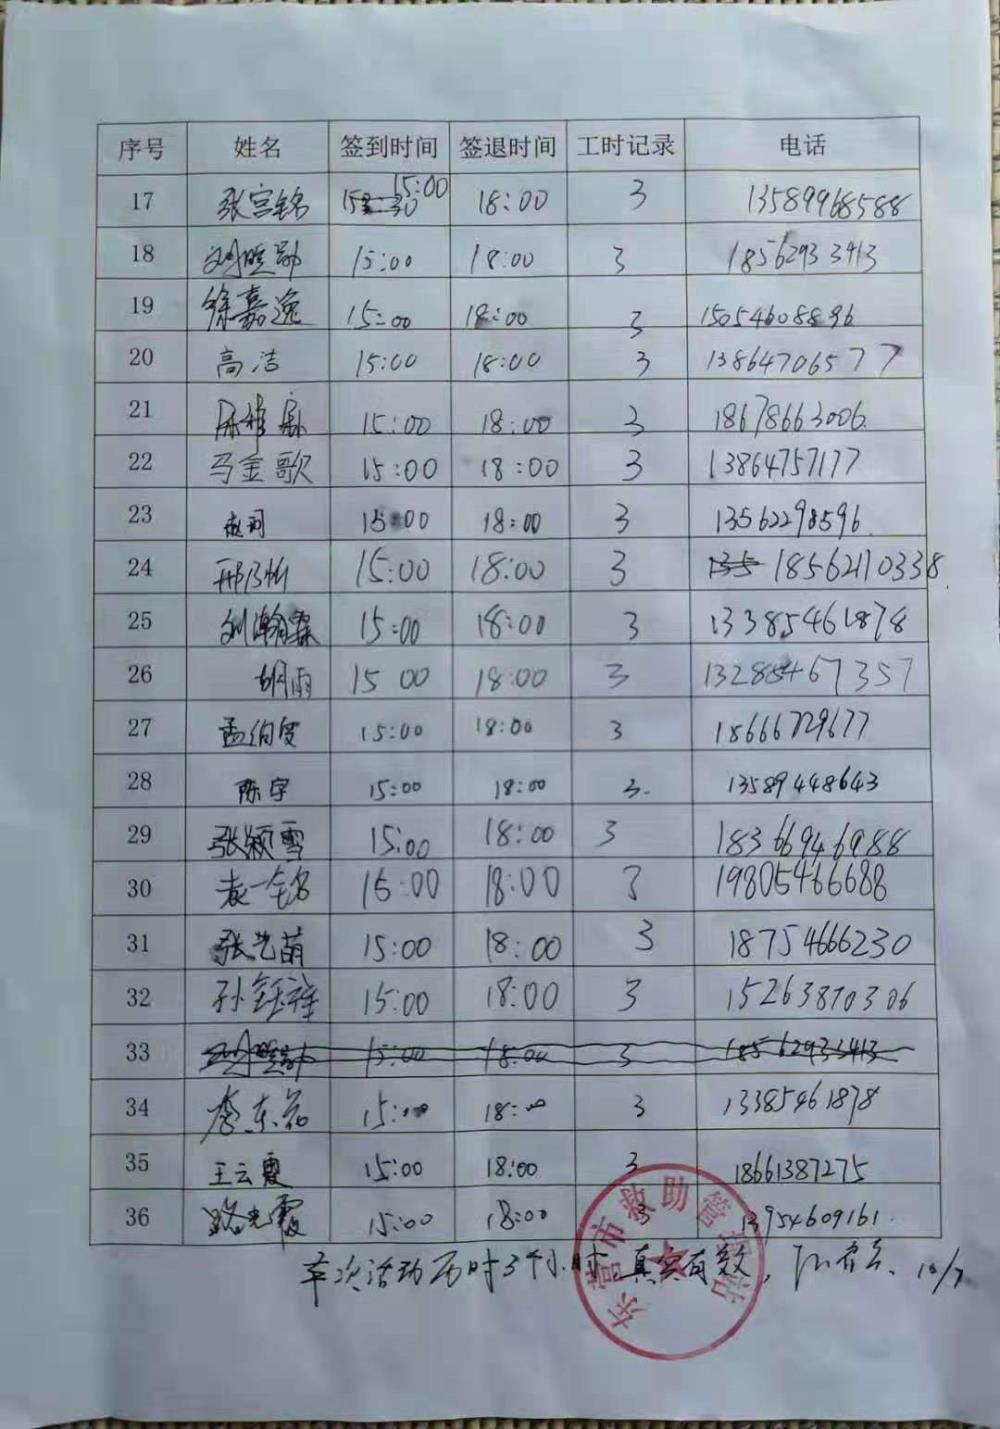 序号 姓名 签到时间 签退时间 工时记录 电话
17 张宫铭 15:00 18:00 3 13589968588
18 刘晓勋 15:00 18:00 3 18562933413
19 徐嘉逸 15:00 18:00 3 15054608896
20 高洁 15:00 18:00 3 13864706577
21 15:00 18:00 3 18678663006
22 马金歌 15:00 18:00 3 13864757177
23 15:00 18:00 3 13562298596
24 15:00 18:00 3 18562110338
25 刘瀚霖 15:00 18:00 3 13385461878
26 胡雨 15 00 18:00 3 13285467357
27 15:00 18:00 3 18666729677
28 陈宇 15:00 18:00 3. 13589448643
29 张颖雪 15:00 18:00 3 18366946988
30 袁一铭 15:00 18:00 3 19805466688
31 张艺萌 15:00 18:00 3 18754666230
32 孙钰祥 15:00 18:00 3 15263870306
33 刘晓勋 15:00 18:00 3 18562933413
34 李东花 15:00 18:00 3 13385461878
35 王云霞 15:00 18:00 3 18661387275
36 路光霞 15:00 18:00 3 13954609161
本次活动历时3个小时,真实有效, 10/7
东营市救助管理站